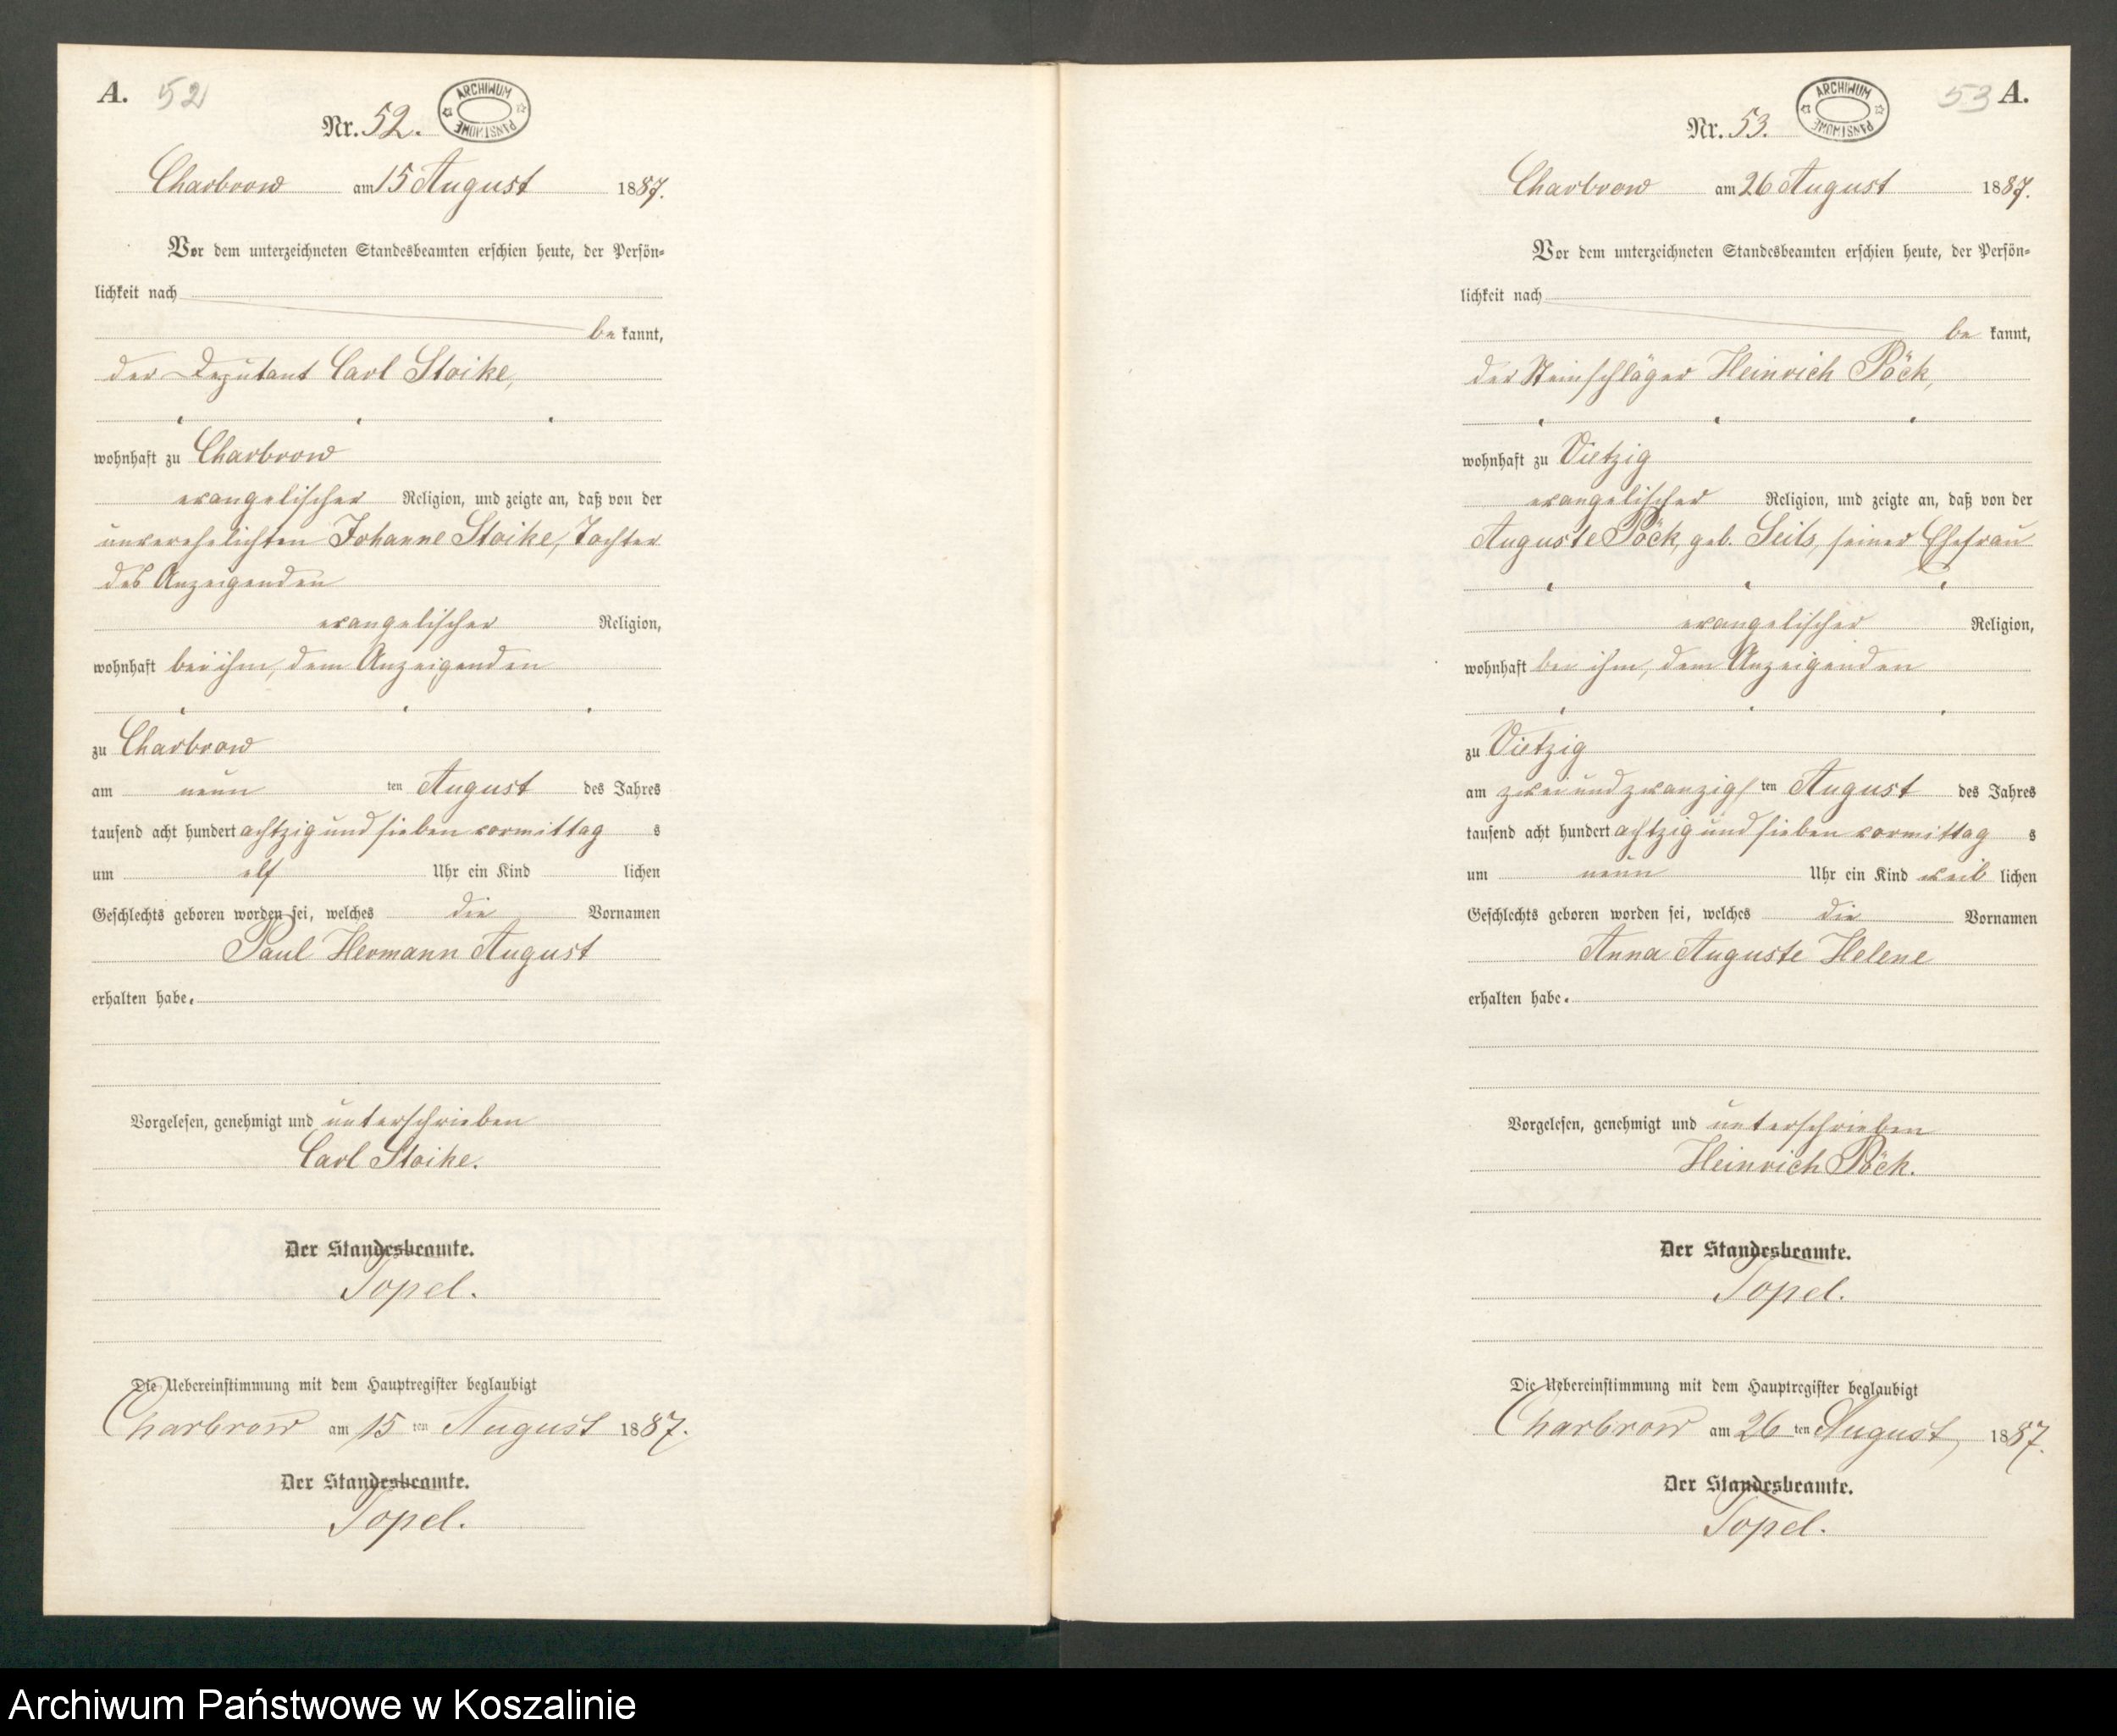 A. 52
Nr. 52.
ARCHIWUM PAŃSTWOWE
Charbrow am 15 August 1887.
Vor dem unterzeichneten Standesbeamten erschien heute, der Persön-
lichkeit nach
be kannt,
der Deputant Carl Stoike,
wohnhaft zu Charbrow
evangelischer Religion, und zeigte an, daß von der
unverehelichten Johanne Stoike, Tochter
des Anzeigenden
evangelischer Religion,
wohnhaft bei ihm, dem Anzeigenden
zu Charbrow
am neun ten August des Jahres
tausend acht hundert achtzig und sieben vormittag s
um elf Uhr ein Kind lichen
Geschlechts geboren worden sei, welches die Vornamen
Paul Hermann August
erhalten habe.
Vorgelesen, genehmigt und unterschrieben
Carl Stoike.
Der Standesbeamte.
Topel.
Die Uebereinstimmung mit dem Hauptregister beglaubigt
Charbrow am 15 ten August 1887.
Der Standesbeamte.
Topel.
53 A.
Nr. 53.
ARCHIWUM PAŃSTWOWE
Charbrow am 26 August 1887.
Vor dem unterzeichneten Standesbeamten erschien heute, der Persön-
lichkeit nach
be kannt,
der Steinschläger Heinrich Pöck,
wohnhaft zu Vietzig
evangelischer Religion, und zeigte an, daß von der
Auguste Pöck, geb. Seils, seiner Ehefrau
evangelischer Religion,
wohnhaft bei ihm, dem Anzeigenden
zu Vietzig
am zwei und zwanzigs ten August des Jahres
tausend acht hundert achtzig und sieben vormittag s
um neun Uhr ein Kind weib lichen
Geschlechts geboren worden sei, welches die Vornamen
Anna Auguste Helene
erhalten habe.
Vorgelesen, genehmigt und unterschrieben
Heinrich Pöck.
Der Standesbeamte.
Topel.
Die Uebereinstimmung mit dem Hauptregister beglaubigt
Charbrow am 26 ten August 1887.
Der Standesbeamte.
Topel.
Archiwum Państwowe w Koszalinie